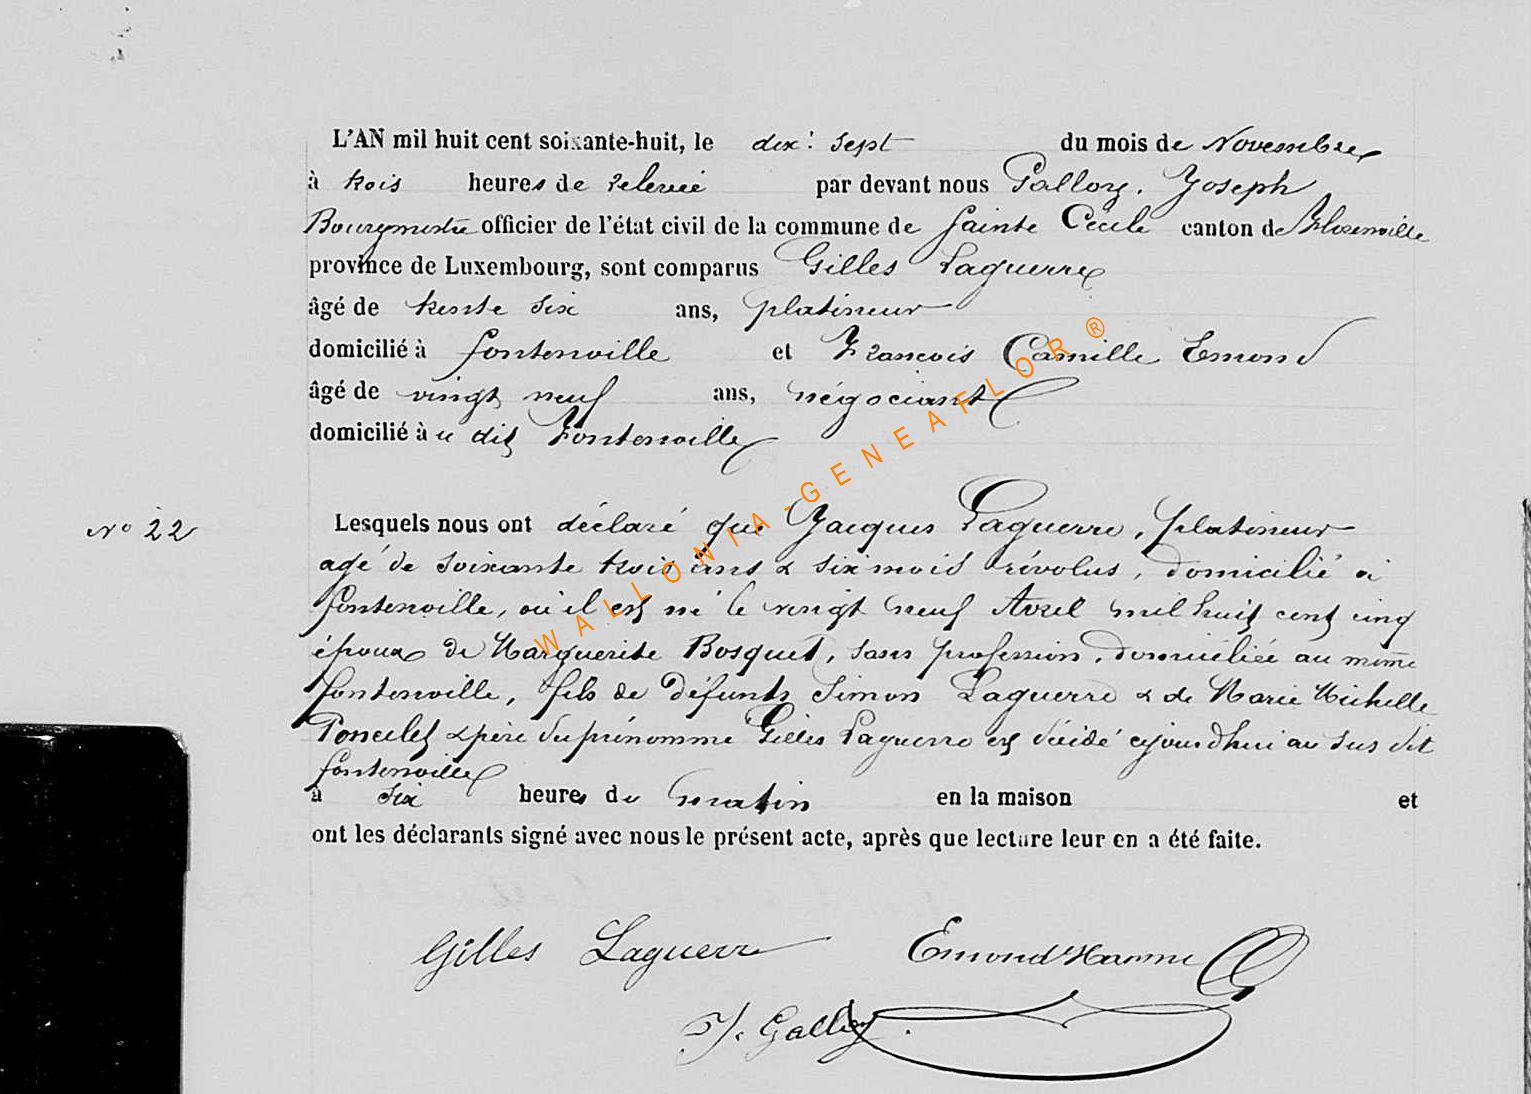 L'AN mil huit cent soixante-huit, le dix-sept du mois de Novembre
à trois heures de relevée par devant nous Galloy, Joseph
Bourgmestre officier de l'état civil de la commune de Sainte Cécile canton de Florenville
province de Luxembourg, sont comparus Gilles Laguerre
âgé de trente six ans, platineur
domicilié à fontenoille et François Camille Emond
âgé de vingt neuf ans, négociant
domicilié à u dit Fontenoille
N° 22
Lesquels nous ont déclaré que Jacques Laguerre, platineur
agé de soixante trois ans & six mois révolus, domicilié à
fontenoille, où il est né le vingt neuf Avril mil huit cent cinq
époux de Marguerite Bosquet, sans profession, domiciliée au même
fontenoille, fils de défunts Simon Laguerre & de Marie Michelle
Poncelet & père du prénommé Gilles Laguerre est décédé cejourd'hui au sus dit
fontenoille
à six heures du matin en la maison et
ont les déclarants signé avec nous le présent acte, après que lecture leur en a été faite.
Gilles Laguerre Emond
J. Galloy
WALLONIA-GENEAFLOR®